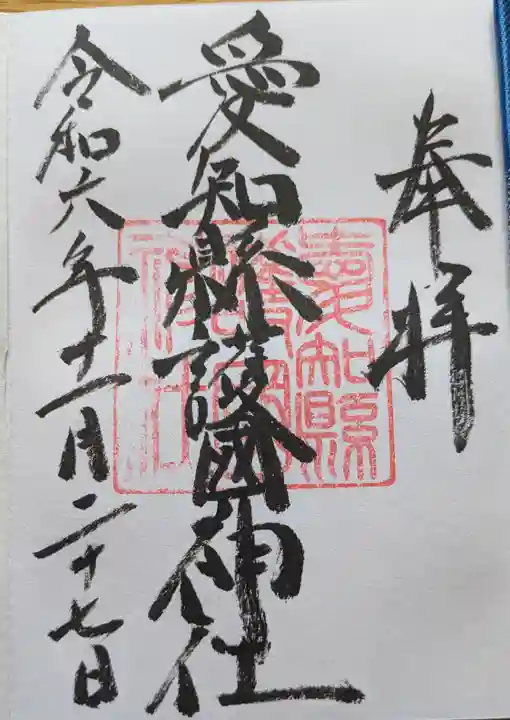 奉拝
愛知縣護國神社
愛知縣
護國
神社
令和六年十一月二十七日